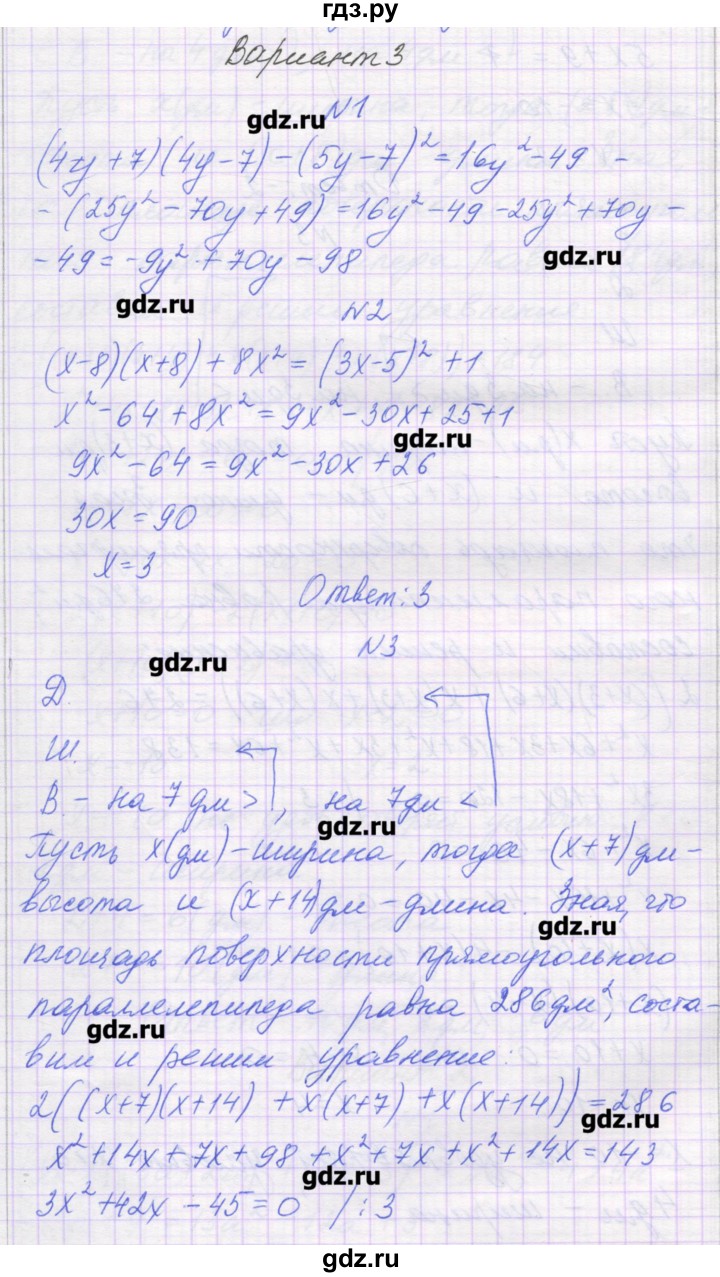 гдз.ру
Вариант 3
N1
gdz.ru
(4y+7)(4y-7)-(5y-7)²=16y²-49 -
-(25y²-70y+49)=16y²-49-25y²+70y-
gdz.ru
-49=-9y²+70y-98
gdz.ru
N2
(x-8)(x+8)+8x²=(3x-5)²+1
x²-64+8x²=9x²-30x+25+1
gdz.ru
9x²-64=9x²-30x+26
30x=90
x=3
Ответ: 3
N3
gdz.ru
Д.
Ш.
В. - на 7 дм >, на 7 дм <
gdz.ru
Пусть x(дм)-ширина, тогда (x+7)дм-
высота и (x+14)дм-длина. Зная, что
gdz.ru
площадь поверхности прямоугольного
параллелепипеда равна 286дм², соста-
gdz.ru
вим и решим уравнение:
2((x+7)(x+14)+x(x+7)+x(x+14))=286
gdz.ru
x²+14x+7x+98+x²+7x+x²+14x=143
gdz.ru
3x²+42x-45=0 /:3
gdz.ru